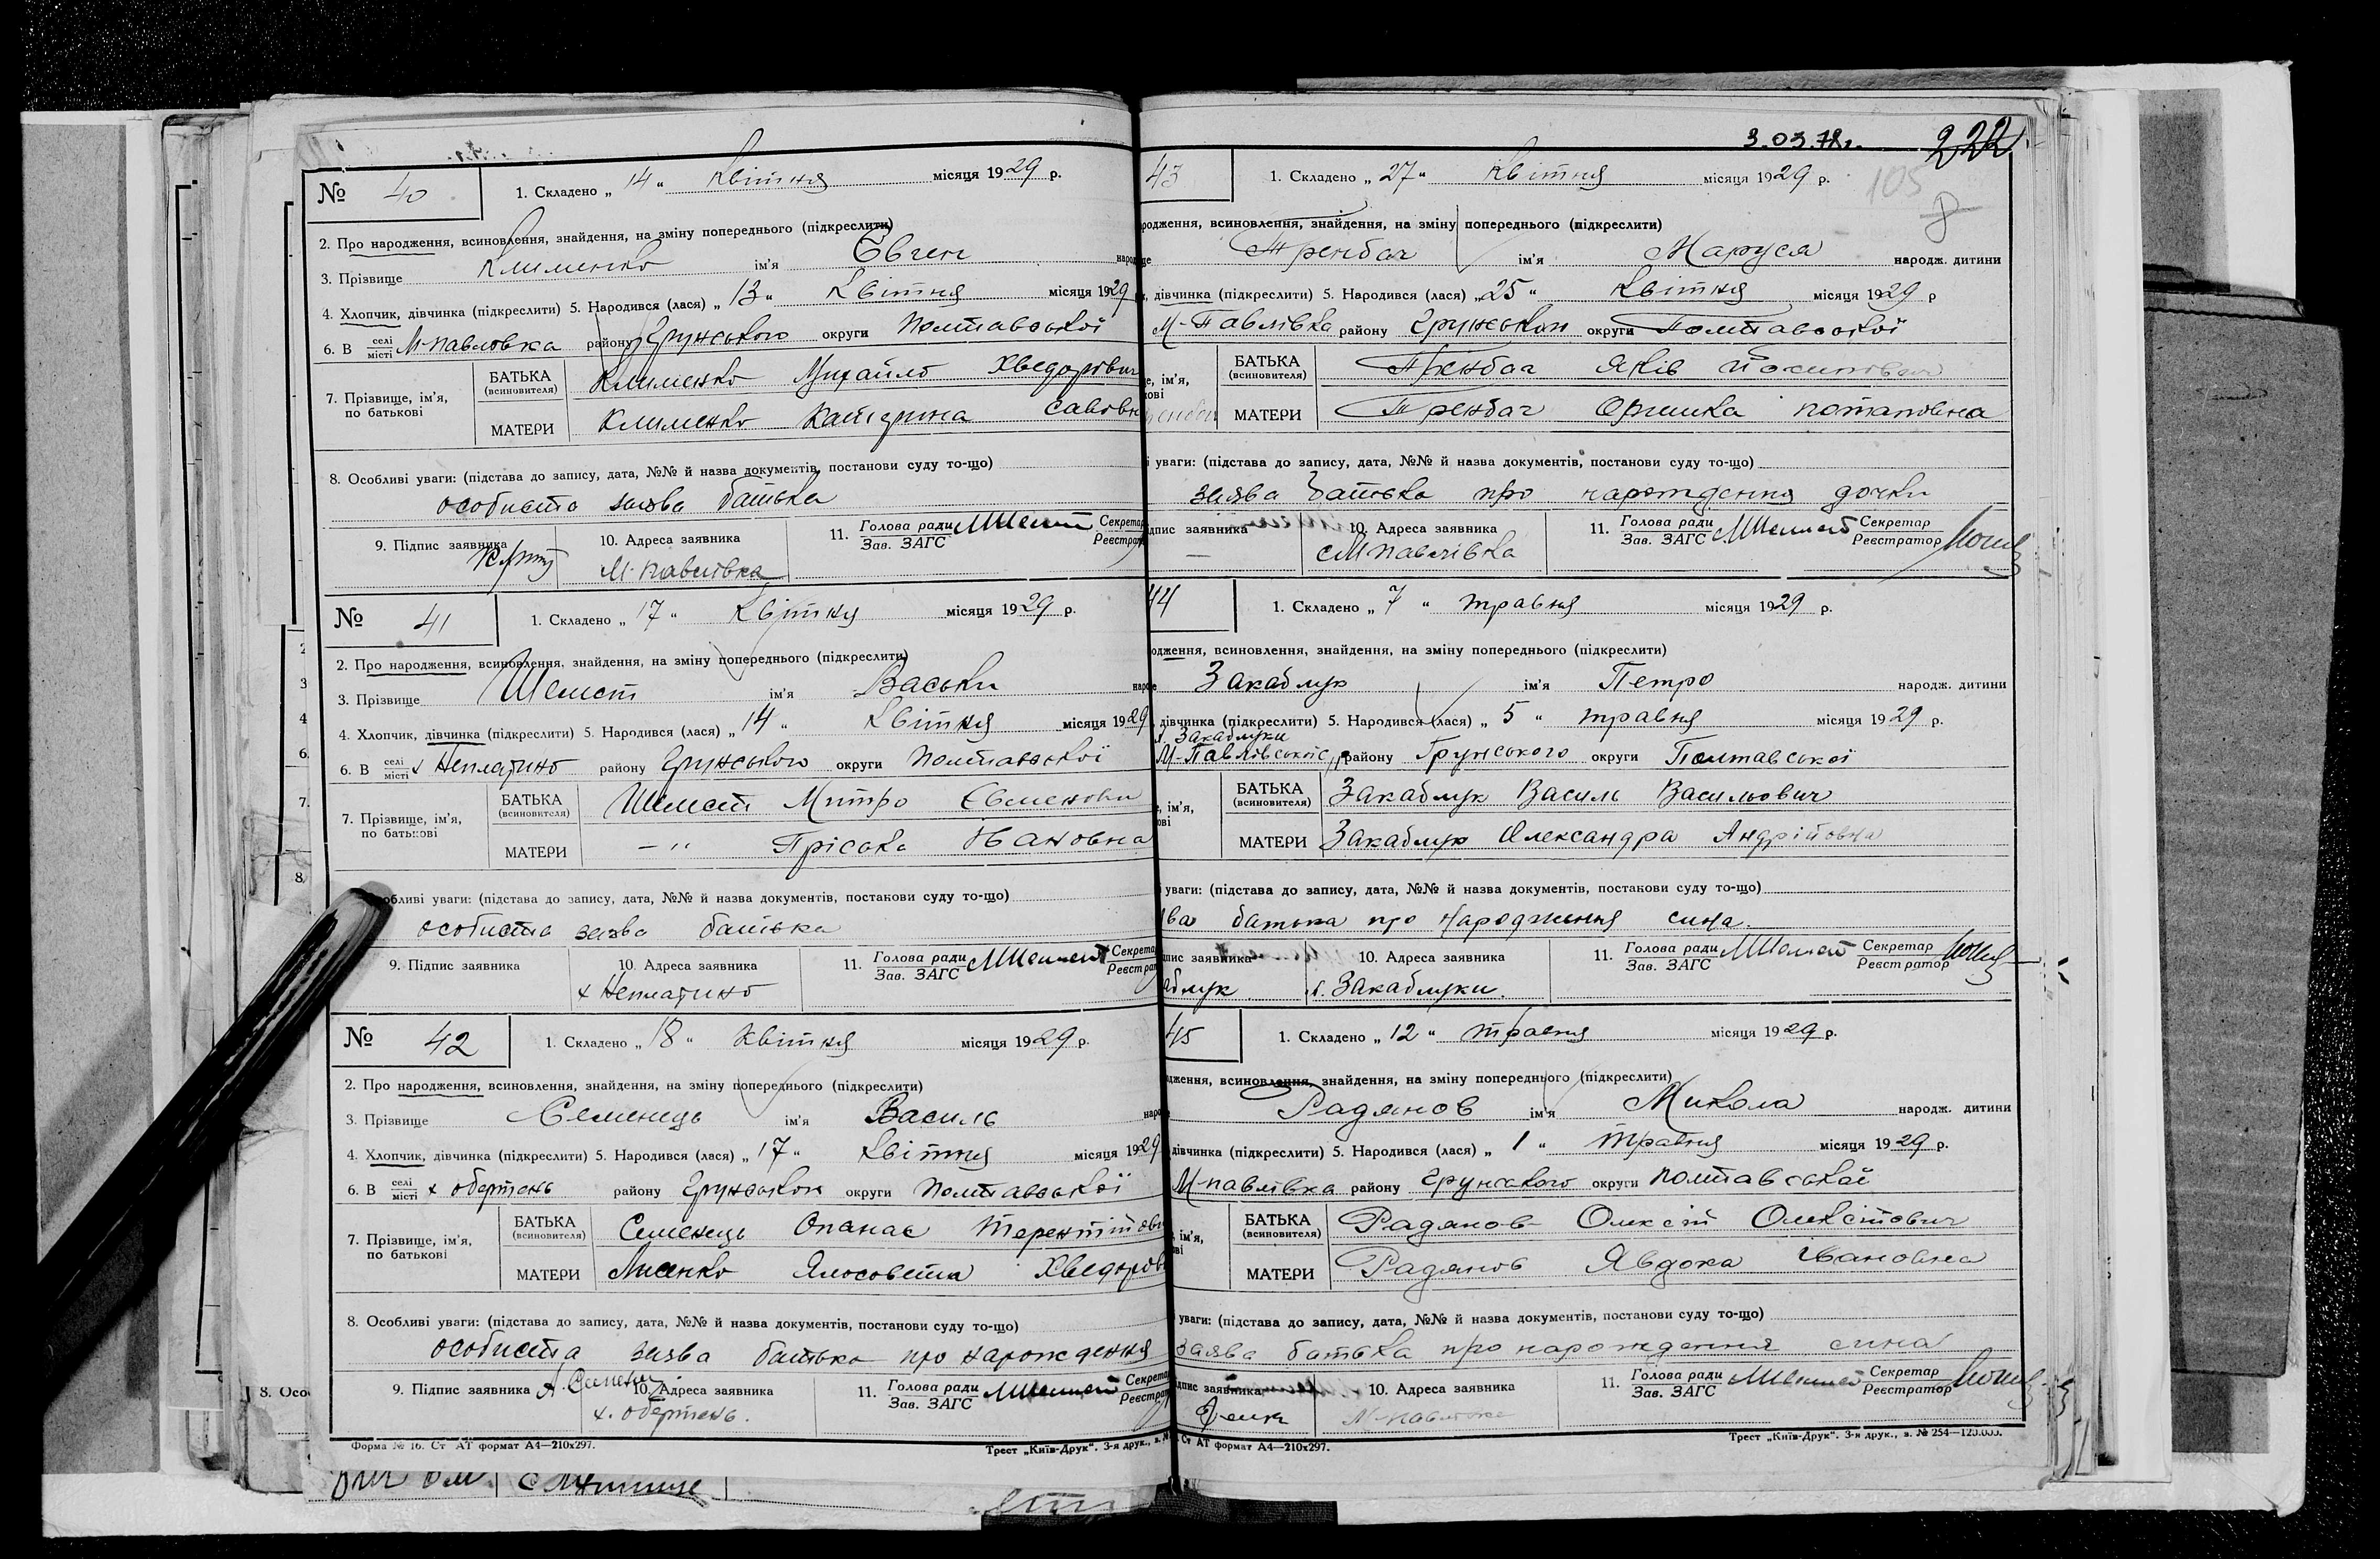 № 40 1. Складено „ 14 " Квітня місяця 1929 р.
2. Про народження, всиновлення, знайдення, на зміну попереднього (підкреслити)
3. Прізвище Клименко ім'я Євген народ
4. Хлопчик, дівчинка (підкреслити) 5. Народився (лася) „ 13 " Квітня місяця 1929
6. В селі місті М-павловка району Грунського округи Полтавської
7. Прізвище, ім'я, по батькові
БАТЬКА (всиновителя) Клименко Михайло Хведорович
МАТЕРИ Клименко Катерина Савовн
8. Особливі уваги: (підстава до запису, дата, №№ й назва документів, постанови суду то-що)
особиста заява батька
9. Підпис заявника 10. Адреса заявника 11. Голова ради Зав. ЗАГС МШемет Секретар Реєстра
М-павлівка
№ 41 1. Складено „ 17 " Квітня місяця 1929 р.
2. Про народження, всиновлення, знайдення, на зміну попереднього (підкреслити)
3. Прізвище Шемет ім'я Васьки наро
4. Хлопчик, дівчинка (підкреслити) 5. Народився (лася) „ 14 " Квітня місяця 1929
6. В селі місті х Неплатино району Грунського округи Полтавської
7. Прізвище, ім'я, по батькові
БАТЬКА (всиновителя) Шемет Митро Євменови
МАТЕРИ —"— Пріська Івановна
обливі уваги: (підстава до запису, дата, №№ й назва документів, постакови суду то-що)
особиста заява батька
9. Підпис заявника 10. Адреса заявника 11. Голова ради Зав. ЗАГС МШемет Секрета Реєстрат
х Неплатино
№ 42 1. Складено „ 18 " квітня місяця 1929 р.
2. Про народження, всиновлення, знайдення, на зміну попереднього (підкреслити)
3. Прізвище Семенець ім'я Василь наро
4. Хлопчик, дівчинка (підкреслити) 5. Народився (лася) „ 17 " Квітня місяця 1929
6. В селі місті х обертень району Грунського округи Полтавської
7. Прізвище, ім'я, по батькові
БАТЬКА (всиновителя) Семенець Опанас Терентійови
МАТЕРИ Лисенко Ялосовета Хведоров
8. Особливі уваги: (підстава до запису, дата, №№ й назва документів, постанови суду то-що)
особиста заява батька про нарождення
9. Підпис заявника А. Семенец 10. Адреса заявника 11. Голова ради Зав. ЗАГС МШемет Секрета Реєстрат
х. обертень.
Форма № 16. Ст АТ формат А4—210х297. Трест „Київ-Друк". 3-я друк., з. №
8. Осо
3.03.78г. 222
105
43 1. Складено „ 27 " Квітня місяця 1929 р.
родження, всиновлення, знайдення, на зміну попереднього (підкреслити)
Тренбач ім'я Маруся народж. дитини
дівчинка (підкреслити) 5. Народився (лася) „ 25 " Квітня місяця 1929 р
М-Павлівка району Грунської округи Полтавської
БАТЬКА (всиновителя) Тренбач Яків Йосипович
е, ім'я,
ові МАТЕРИ Тренбач Оришка потаповна
і уваги: (підстава до запису, дата, №№ й назва документів, постанови суду то-що)
заява батька про нарождення дочки
дпис заявника 10. Адреса заявника 11. Голова ради Зав. ЗАГС МШемет Секретар Реєстратор
— с Мпавлівка
44 1. Складено „ 7 " травня місяця 1929 р.
одження, всиновлення, знайдення, на зміну попереднього (підкреслити)
Закаблук ім'я Петро народж. дитини
дівчинка (підкреслити) 5. Народився (лася) „ 5 " травня місяця 1929 р.
х. Закаблуки
М-Павлівської с/р району Грунського округи Полтавської
БАТЬКА (всиновителя) Закаблук Василь Васильович
е, ім'я,
ові МАТЕРИ Закаблук Олександра Андрійовна
уваги: (підстава до запису, дата, №№ й назва документів, постакови суду то-що)
ва батька про народження сина.
дпис заявника 10. Адреса заявника 11. Голова ради Зав. ЗАГС МШемет Секретар Реєстратор
аблук х. Закаблуки.
45 1. Складено „ 12 " травня місяця 1929 р.
одження, всиновлення, знайдення, на зміну попереднього (підкреслити)
Радянов ім'я Микола народж. дитини
дівчинка (підкреслити) 5. Народився (лася) „ 1 " травня місяця 1929 р.
М-павлівка району Грунського округи полтавської
БАТЬКА (всиновителя) Радянов Олексій Олексійович
ім'я,
ві МАТЕРИ Радянов Явдоха Івановна
уваги: (підстава до запису, дата, №№ й назва документів, постанови суду то-що)
заява батька про нарождення сина
дпис заявника 10. Адреса заявника 11. Голова ради Зав. ЗАГС МШемет Секретар Реєстратор
М-павлівка
Ст АТ формат А4—210х297. Трест „Київ-Друк". 3-я друк., з. № 254—120.000.